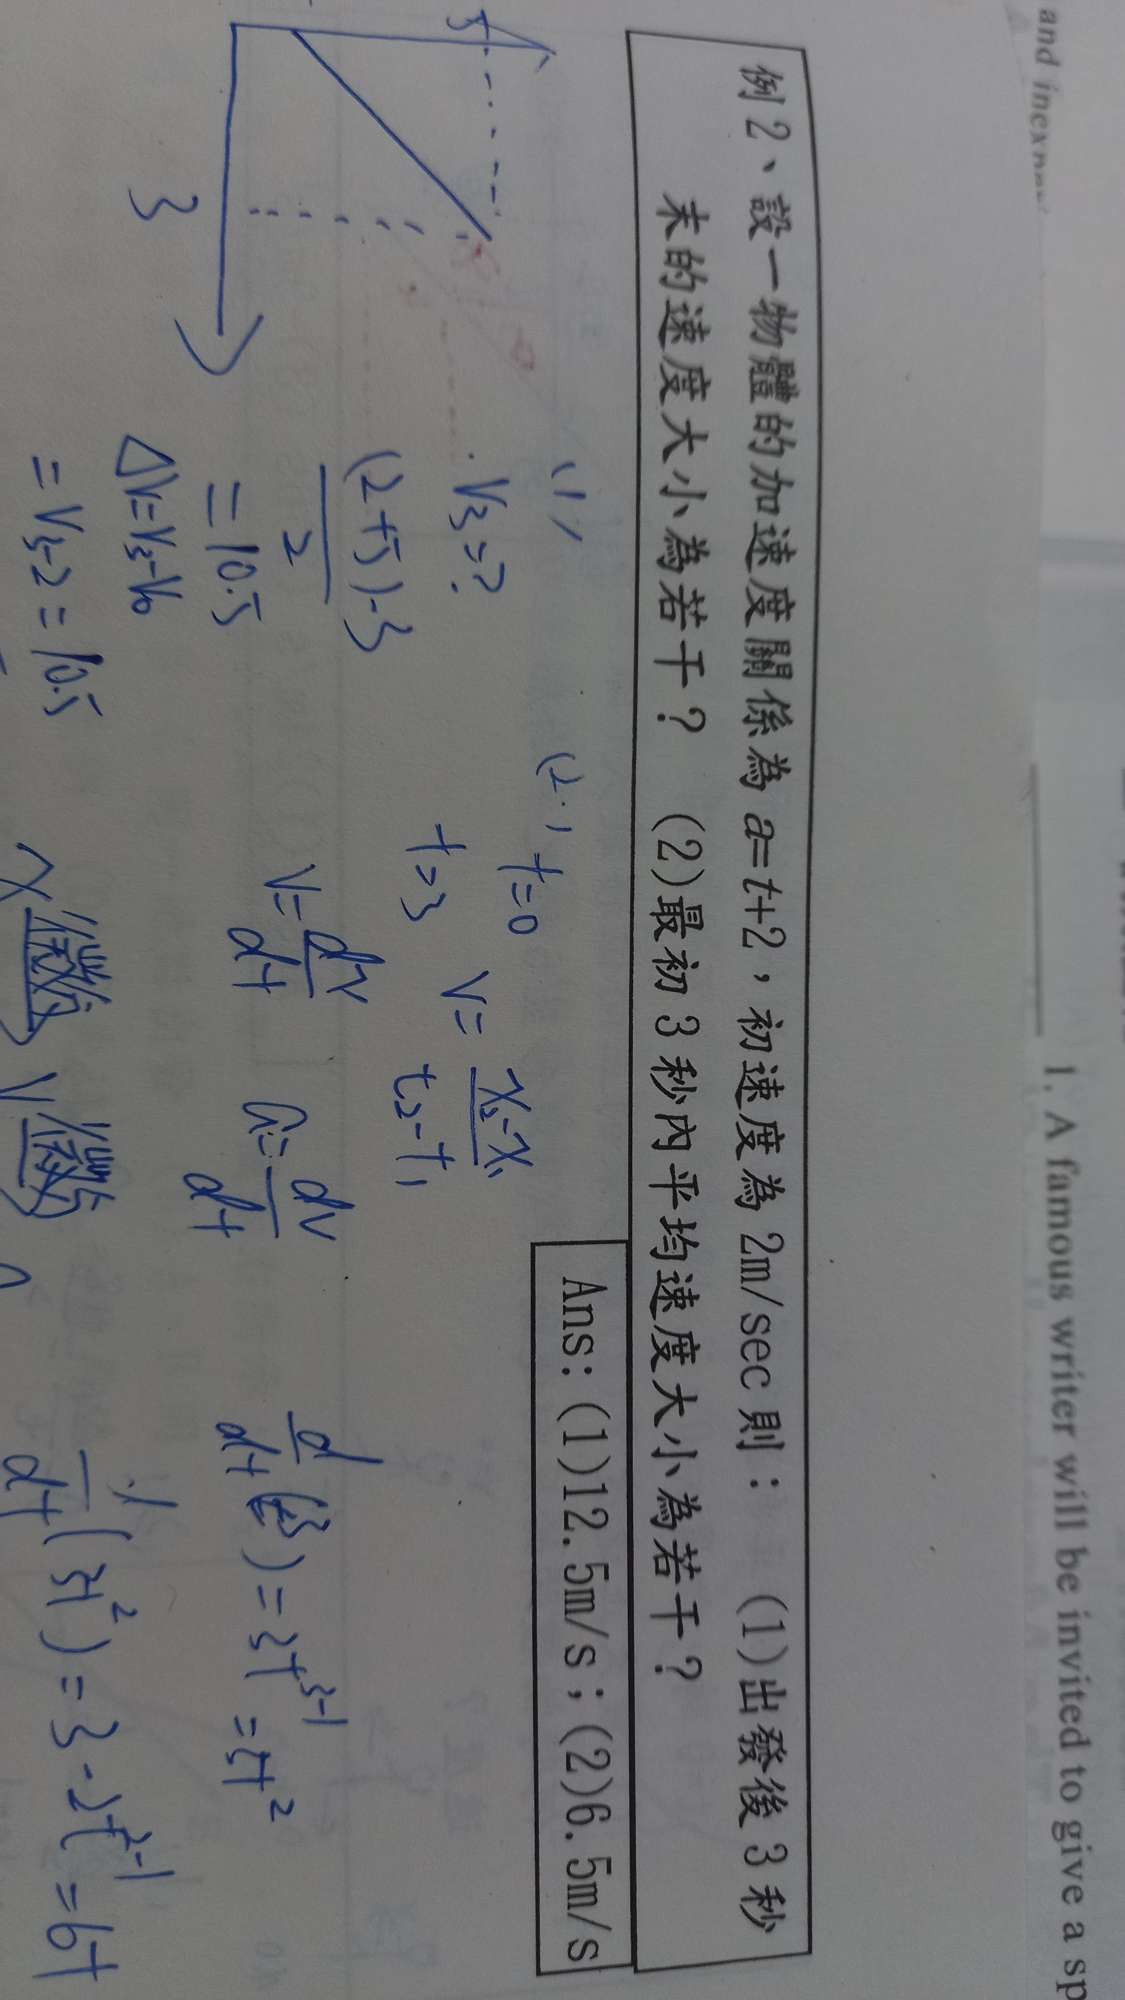 and inexp
1. A famous writer will be invited to give a sp
例2、設一物體的加速度關係為a=t+2，初速度為2m/sec則： (1)出發後3秒
末的速度大小為若干？ (2)最初3秒內平均速度大小為若干？
Ans：(1)12.5m/s；(2)6.5m/s
5
3
(1)
V3=?
(2+5)·3
2
=10.5
ΔV=V3-V0
=V3-2=10.5
(2.)
t=0
t=3
V= x2-x1
t2-t1
V= dx
dt
a= dv
dt
x 微分 V 微分
d
dt (t³)=3t³⁻¹=3t²
dt (3t²)=3·2t²⁻¹=6t